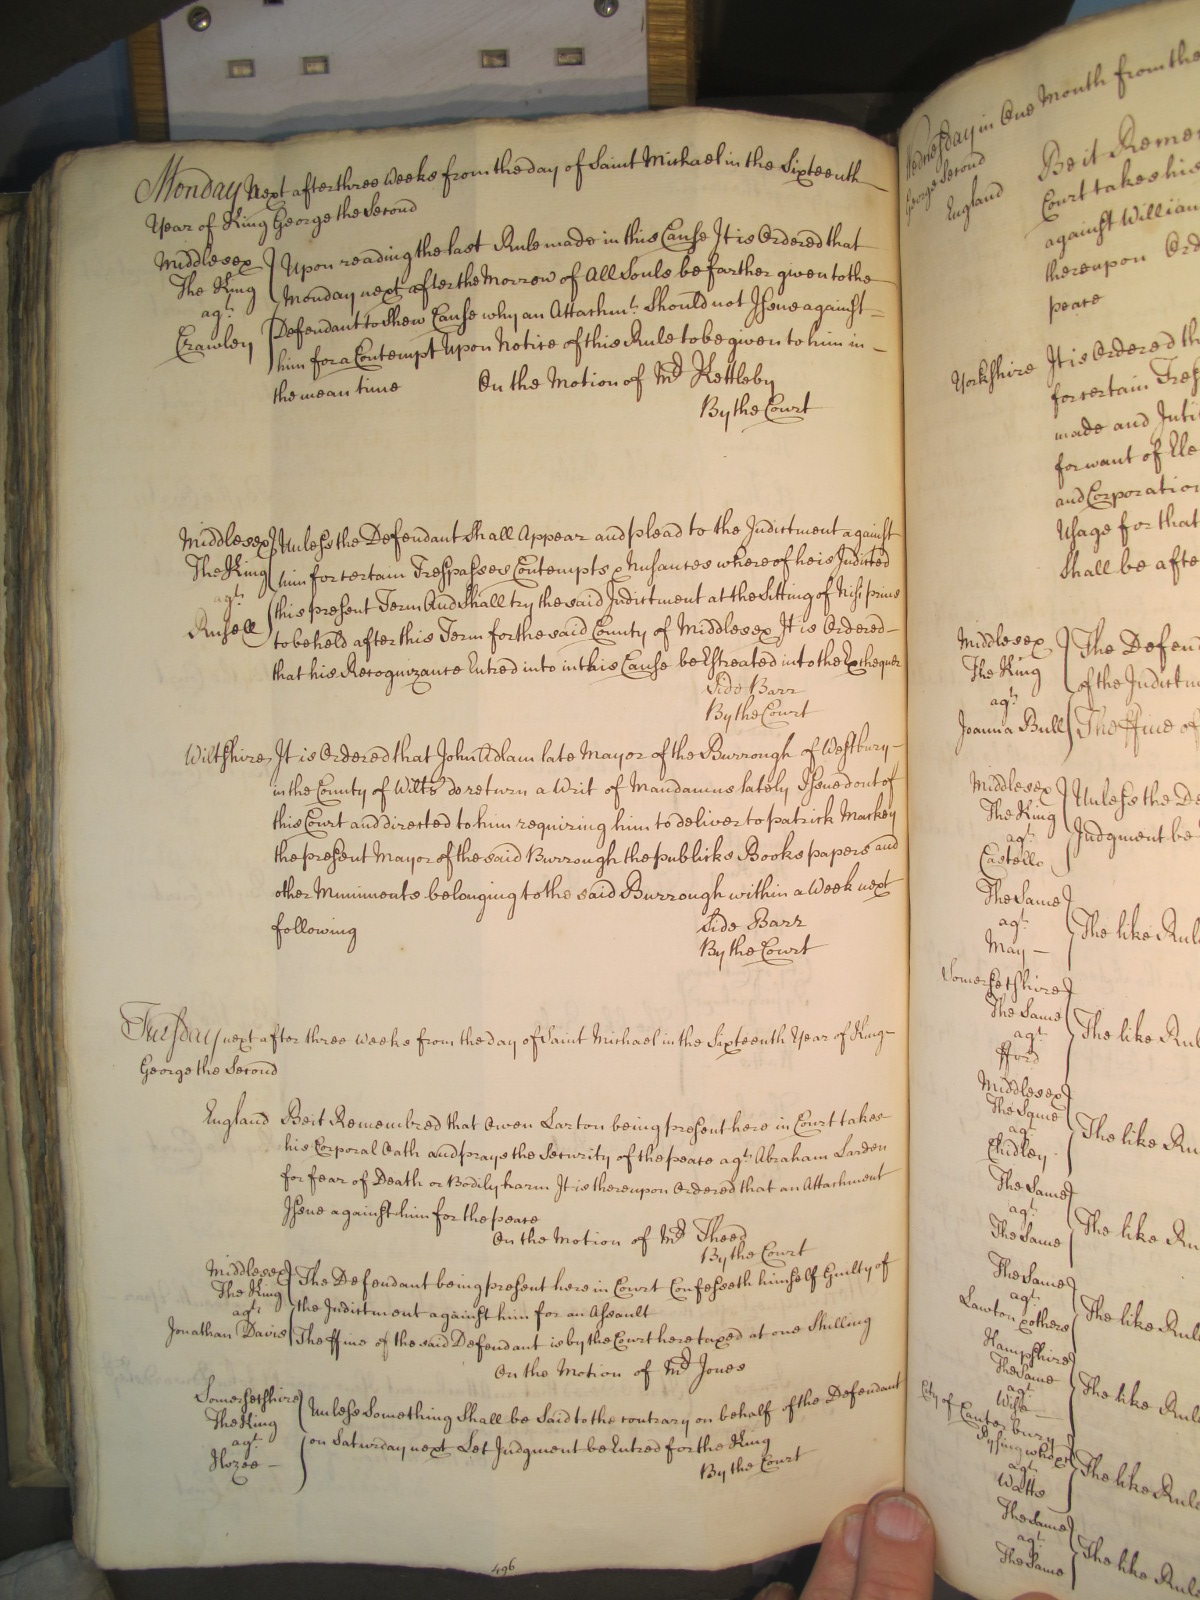 Monday Next after three Weeks from the day of Saint Michael in the Sixteenth
Year of King George the Second
Middlesex
The King
agt.
Crawley
Upon reading the last Rule made in this Cause It is Ordered that
Monday next after the Morrow of All Souls be farther given to the
Defendant to Shew Cause why an Attachmt. Should not Issue against
him for a Contempt Upon Notice of this Rule to be given to him in
the mean time On the Motion of Mr Kettleby
By the Court
Middlesex
The King
agt.
Russell
Unless the Defendant Shall Appear and plead to the Indictment against
him for certain Trespasses Contempts & Nusances whereof he is Indicted
this present Term And Shall try the said Indictment at the Sitting of Nisi prius
to be held after this Term for the said County of Middlesex It is Ordered
that his Recognizance Entred into in this Cause be Estreated into the Exchequer
Side Barr
By the Court
Wiltshire It is Ordered that John Adlam late Mayor of the Burrough of Westbury
in the County of Wilts do return a Writ of Mandamus lately Issued out of
this Court and directed to him requiring him to deliver to patrick Markey
the present Mayor of the said Burrough the publicks Books papers and
other Muniments belonging to the said Burrough within a Week next
following
Side Barr
By the Court
Tuesday next after three weeks from the day of Saint Michael in the Sixteenth Year of King
George the Second
England Be it Remembred that Owen Larton being present here in Court takes
his Corporal Oath and prays the Security of the peace agt. Abraham Larden
for fear of Death or Bodily harm It is thereupon Ordered that an Attachment
Issue against him for the peace
On the Motion of Mr Theed
By the Court
Middlesex
The King
agt.
Jonathan Davis
The Defendant being present here in Court Confesseth himself Guilty of
the Indictment against him for an Assault
The ffine of the said Defendant is by the Court here taxed at one Shilling
On the Motion of Mr Jones
Somersetshire
The King
agt.
Hozee
Unless Something Shall be Said to the contrary on behalf of the Defendant
on Saturday next Let Judgment be Entred for the King
By the Court
496
Wednesday in One Month from the
George Second
England Be it Remem
Court takes his
against William
thereupon Ord
peace
Yorkshire It is Ordered th
for certain Tres
made and
for want of
and Corporation
Usage for that
Shall be afte
Middlesex
The King
agt.
Joanna Bull
The Defen
of the Indictm
The ffine of
Middlesex
The King
agt.
Castello
Unless the De
Judgment be
The Same
agt.
May
The like Rul
Somersetshire
The Same
agt.
fford
The like Rul
Middlesex
The Same
agt.
Chidley
The like Ru
The Same
agt.
The Same
The like Ru
The Same
agt.
Lawton & others
The like Rul
Hampshire
The Same
agt.
Wise
The like Rul
City of Canterbury
agt.
Watts
The like Rule
The Same
agt.
The Same
The like Rule